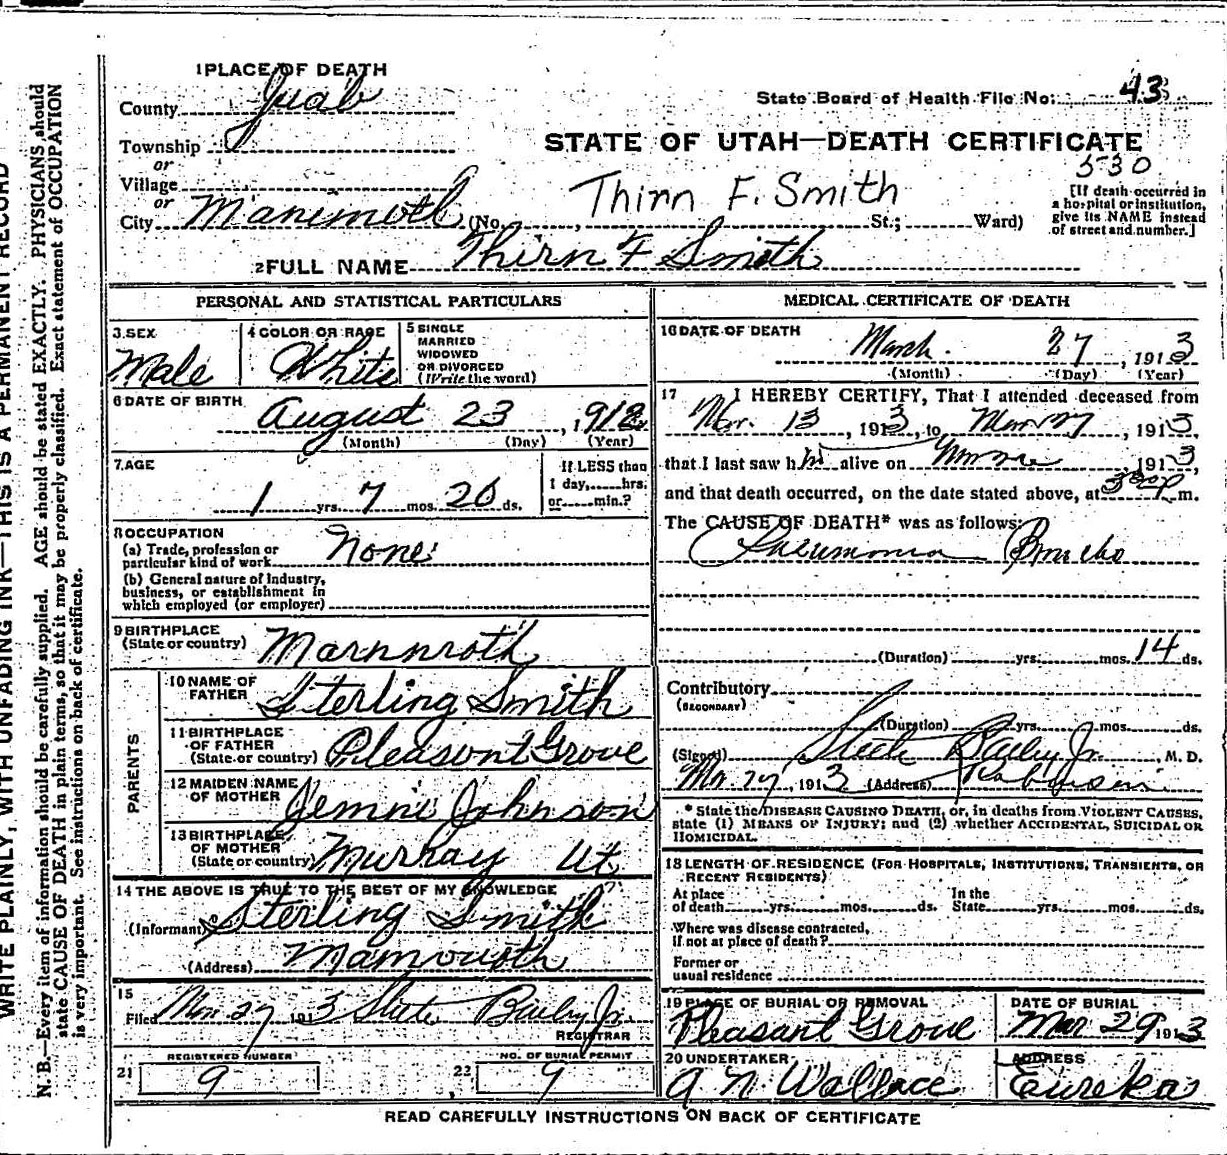 WRITE PLAINLY, WITH UNFADING INK—THIS IS A PERMANENT RECORD
N. B.—Every item of information should be carefully supplied. AGE should be stated EXACTLY. PHYSICIANS should
state CAUSE OF DEATH in plain terms, so that it may be properly classified. Exact statement of OCCUPATION
is very important. See instructions on back of certificate.
1 PLACE OF DEATH
County Juab
Township
or
Village
or
City Mammoth (No. St.; Ward)
State Board of Health File No. 43
STATE OF UTAH—DEATH CERTIFICATE
530
Thirn F. Smith
[If death occurred in
a hospital or institution,
give its NAME instead
of street and number.]
2 FULL NAME Thirn F Smith
PERSONAL AND STATISTICAL PARTICULARS
3 SEX
Male
4 COLOR OR RACE
White
5 SINGLE
MARRIED
WIDOWED
OR DIVORCED
(Write the word)
6 DATE OF BIRTH
August 23, 191
(Month) (Day) (Year)
7 AGE
1 yrs. 7 mos. 26 ds.
If LESS than
1 day, hrs.
or min.?
8 OCCUPATION
(a) Trade, profession or
particular kind of work None
(b) General nature of industry,
business, or establishment in
which employed (or employer)
9 BIRTHPLACE
(State or country) Mammoth
PARENTS
10 NAME OF
FATHER Sterling Smith
11 BIRTHPLACE
OF FATHER
(State or country) Pleasont Grove
12 MAIDEN NAME
OF MOTHER Jemne Johnson
13 BIRTHPLACE
OF MOTHER
(State or country) Murray Ut
14 THE ABOVE IS TRUE TO THE BEST OF MY KNOWLEDGE
(Informant) Sterling Smith
(Address) Mamouth
15
Filed Mar 27 1913 Steele Bailey Jr.
REGISTRAR
REGISTERED NUMBER
21 9
NO. OF BURIAL PERMIT
22 9
MEDICAL CERTIFICATE OF DEATH
16 DATE OF DEATH
March 27, 1913
(Month) (Day) (Year)
17 I HEREBY CERTIFY, That I attended deceased from
Mar. 13, 1913, to Mar 27, 1913,
that I last saw him alive on 1913,
and that death occurred, on the date stated above, at 330 P m.
The CAUSE OF DEATH* was as follows:
Pneumonia Broncho
(Duration) yrs. mos. 14 ds.
Contributory
(SECONDARY)
(Duration) yrs. mos. ds.
(Signed) Steele Bailey Jr., M. D.
Mar 27, 1913 (Address) Robinson
* State the DISEASE CAUSING DEATH, or, in deaths from VIOLENT CAUSES,
state (1) MEANS OF INJURY; and (2) whether ACCIDENTAL, SUICIDAL OR
HOMICIDAL.
18 LENGTH OF RESIDENCE (FOR HOSPITALS, INSTITUTIONS, TRANSIENTS, OR
RECENT RESIDENTS)
At place
of death yrs. mos. ds.
In the
State yrs. mos. ds.
Where was disease contracted,
if not at place of death?
Former or
usual residence
19 PLACE OF BURIAL OR REMOVAL
Pleasant Grove
DATE OF BURIAL
Mar 29 1913
20 UNDERTAKER
A N Wallace
ADDRESS
Eureka
READ CAREFULLY INSTRUCTIONS ON BACK OF CERTIFICATE